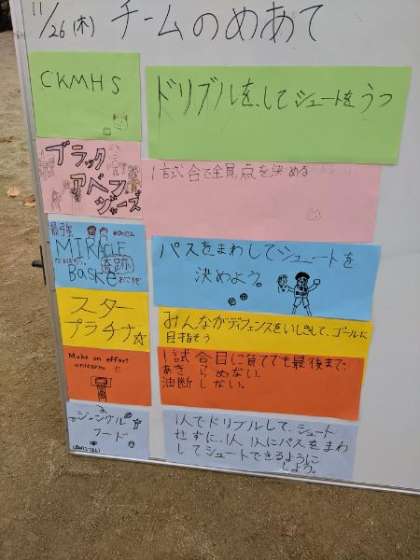 11/26(木) チームのめあて
CKMHS
ドリブルをしてシュートをうつ
ブラック
アベン
ジャーズ
1試合で全員点を決める
最強
MIRACLE
奇跡
Baske
パスをまわしてシュートを
決めよう。
スター
プラチナ☆
みんながディフェンスをいしきして、ゴールに
目指そう
Make an effort
unicorn
1試合目に負けても最後まで
あきらめない。
油断しない。
ジャングル
フード
1人でドリブルして、シュート
せずに、1人1人にパスをまわ
してシュートできるように
しよう。